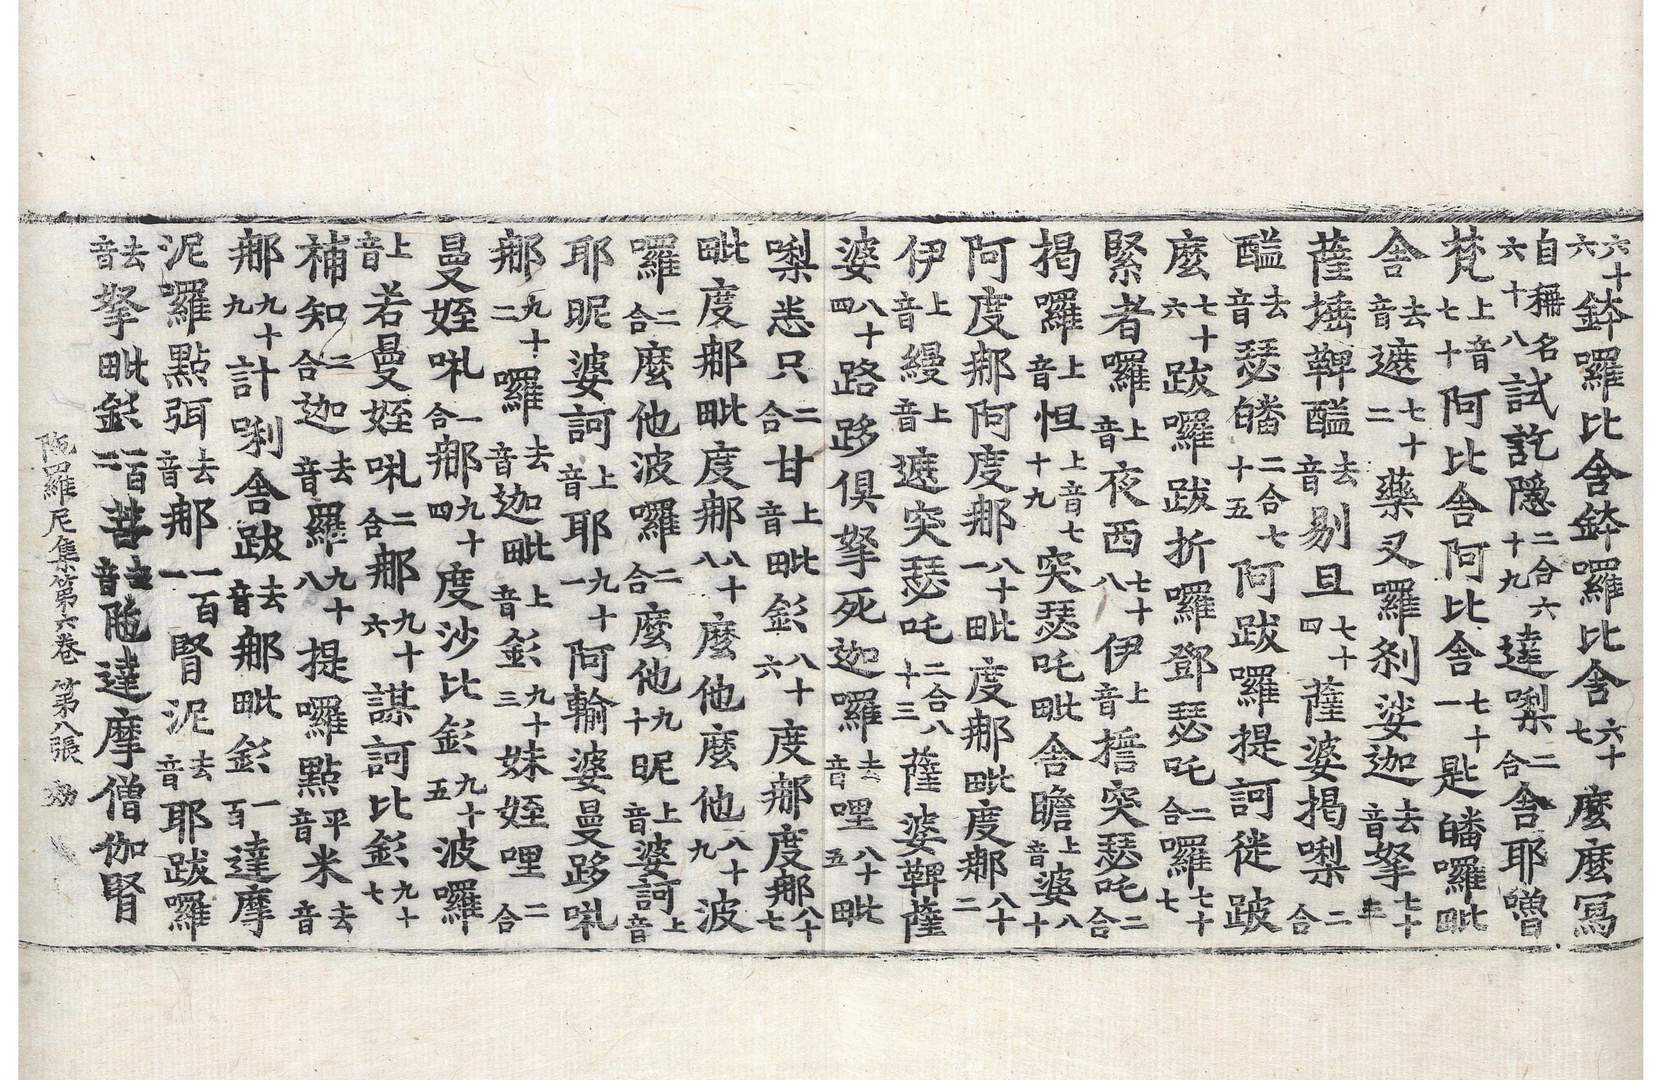 六十六鉢囉比舍鉢囉比舍六十七麼麼寫
自稱名六十八試訖隱二合六十九達㗚二合舍耶噌
梵上音七十阿比舍阿比舍七十一匙皤囉毗
舍去音遮七十二藥叉囉刹娑迦去音拏七十三
薩埵鞞醯去音剔旦七十四薩婆揭㗚二合
醯去音瑟皤二合七十五阿跋囉提訶徙跛
麼七十六跋囉跋折囉鄧瑟吒二合囉七十七
緊者囉上音夜西七十八伊上音擔突瑟吒二合
揭囉上音怛上音七十九突瑟吒毗舍瞻上音婆八十
阿度那阿度那八十一毗度那毗度那八十二
伊上音縵上音遮突瑟吒二合八十三薩婆鞞薩
婆八十四路跢俱拏死迦囉去音哩八十五毗
㗚恙只二合甘上音毗彣八十六度那度那八十七
毗度那毗度那八十八麼他麼他八十九波
囉二合麼他波囉二合麼他九十昵上音婆訶上音
耶昵婆訶上音耶九十一阿輸婆曼跢㘑
那九十二囉去音迦毗上音彣九十三妹姪哩二合
曼姪㘑一合那九十四度沙比彣九十五波囉
上音若曼姪㘑二合那九十六謀訶比彣九十七
補知二合迦去音羅九十八提囉點平音米去音
那九十九計唎舍跋去音那毗彣一百達摩
泥邏點弭去音那一百一腎泥去音耶跋囉
去音拏毗彣一百二菩去音陁達摩僧伽腎
陁羅尼集第六卷 第八張 効